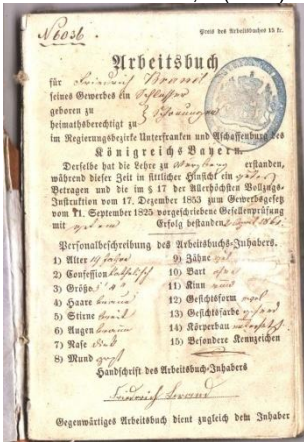 № 6036.
Preis des Arbeitsbuches 15 kr.
Arbeitsbuch
für Friedrich Brandt
seines Gewerbes ein Schlosser
geboren zu
heimathsberechtigt zu
im Regierungsbezirke Unterfranken und Aschaffenburg des
Königreichs Bayern.
Derselbe hat die Lehre zu erstanden,
während dieser Zeit in sittlicher Hinsicht ein gutes
Betragen und die im § 17 der Allerhöchsten Vollzugs-
Instruktion vom 17. Dezember 1853 zum Gewerbsgesetz
vom 11. September 1825 vorgeschriebene Gesellenprüfung
mit gutem Erfolg bestanden.
Personalbeschreibung des Arbeitsbuchs-Inhabers.
1) Alter 19 Jahre
2) Confession katholisch
3) Größe
4) Haare braun
5) Stirne breit
6) Augen braun
7) Nase dick
8) Mund groß
9) Zähne gut
10) Bart ohne
11) Kinn rund
12) Gesichtsform oval
13) Gesichtsfarbe gesund
14) Körperbau untersetzt
15) Besondere Kennzeichen
Handschrift des Arbeitsbuch-Inhabers
Friedrich Brand
Gegenwärtiges Arbeitsbuch dient zugleich dem Inhaber